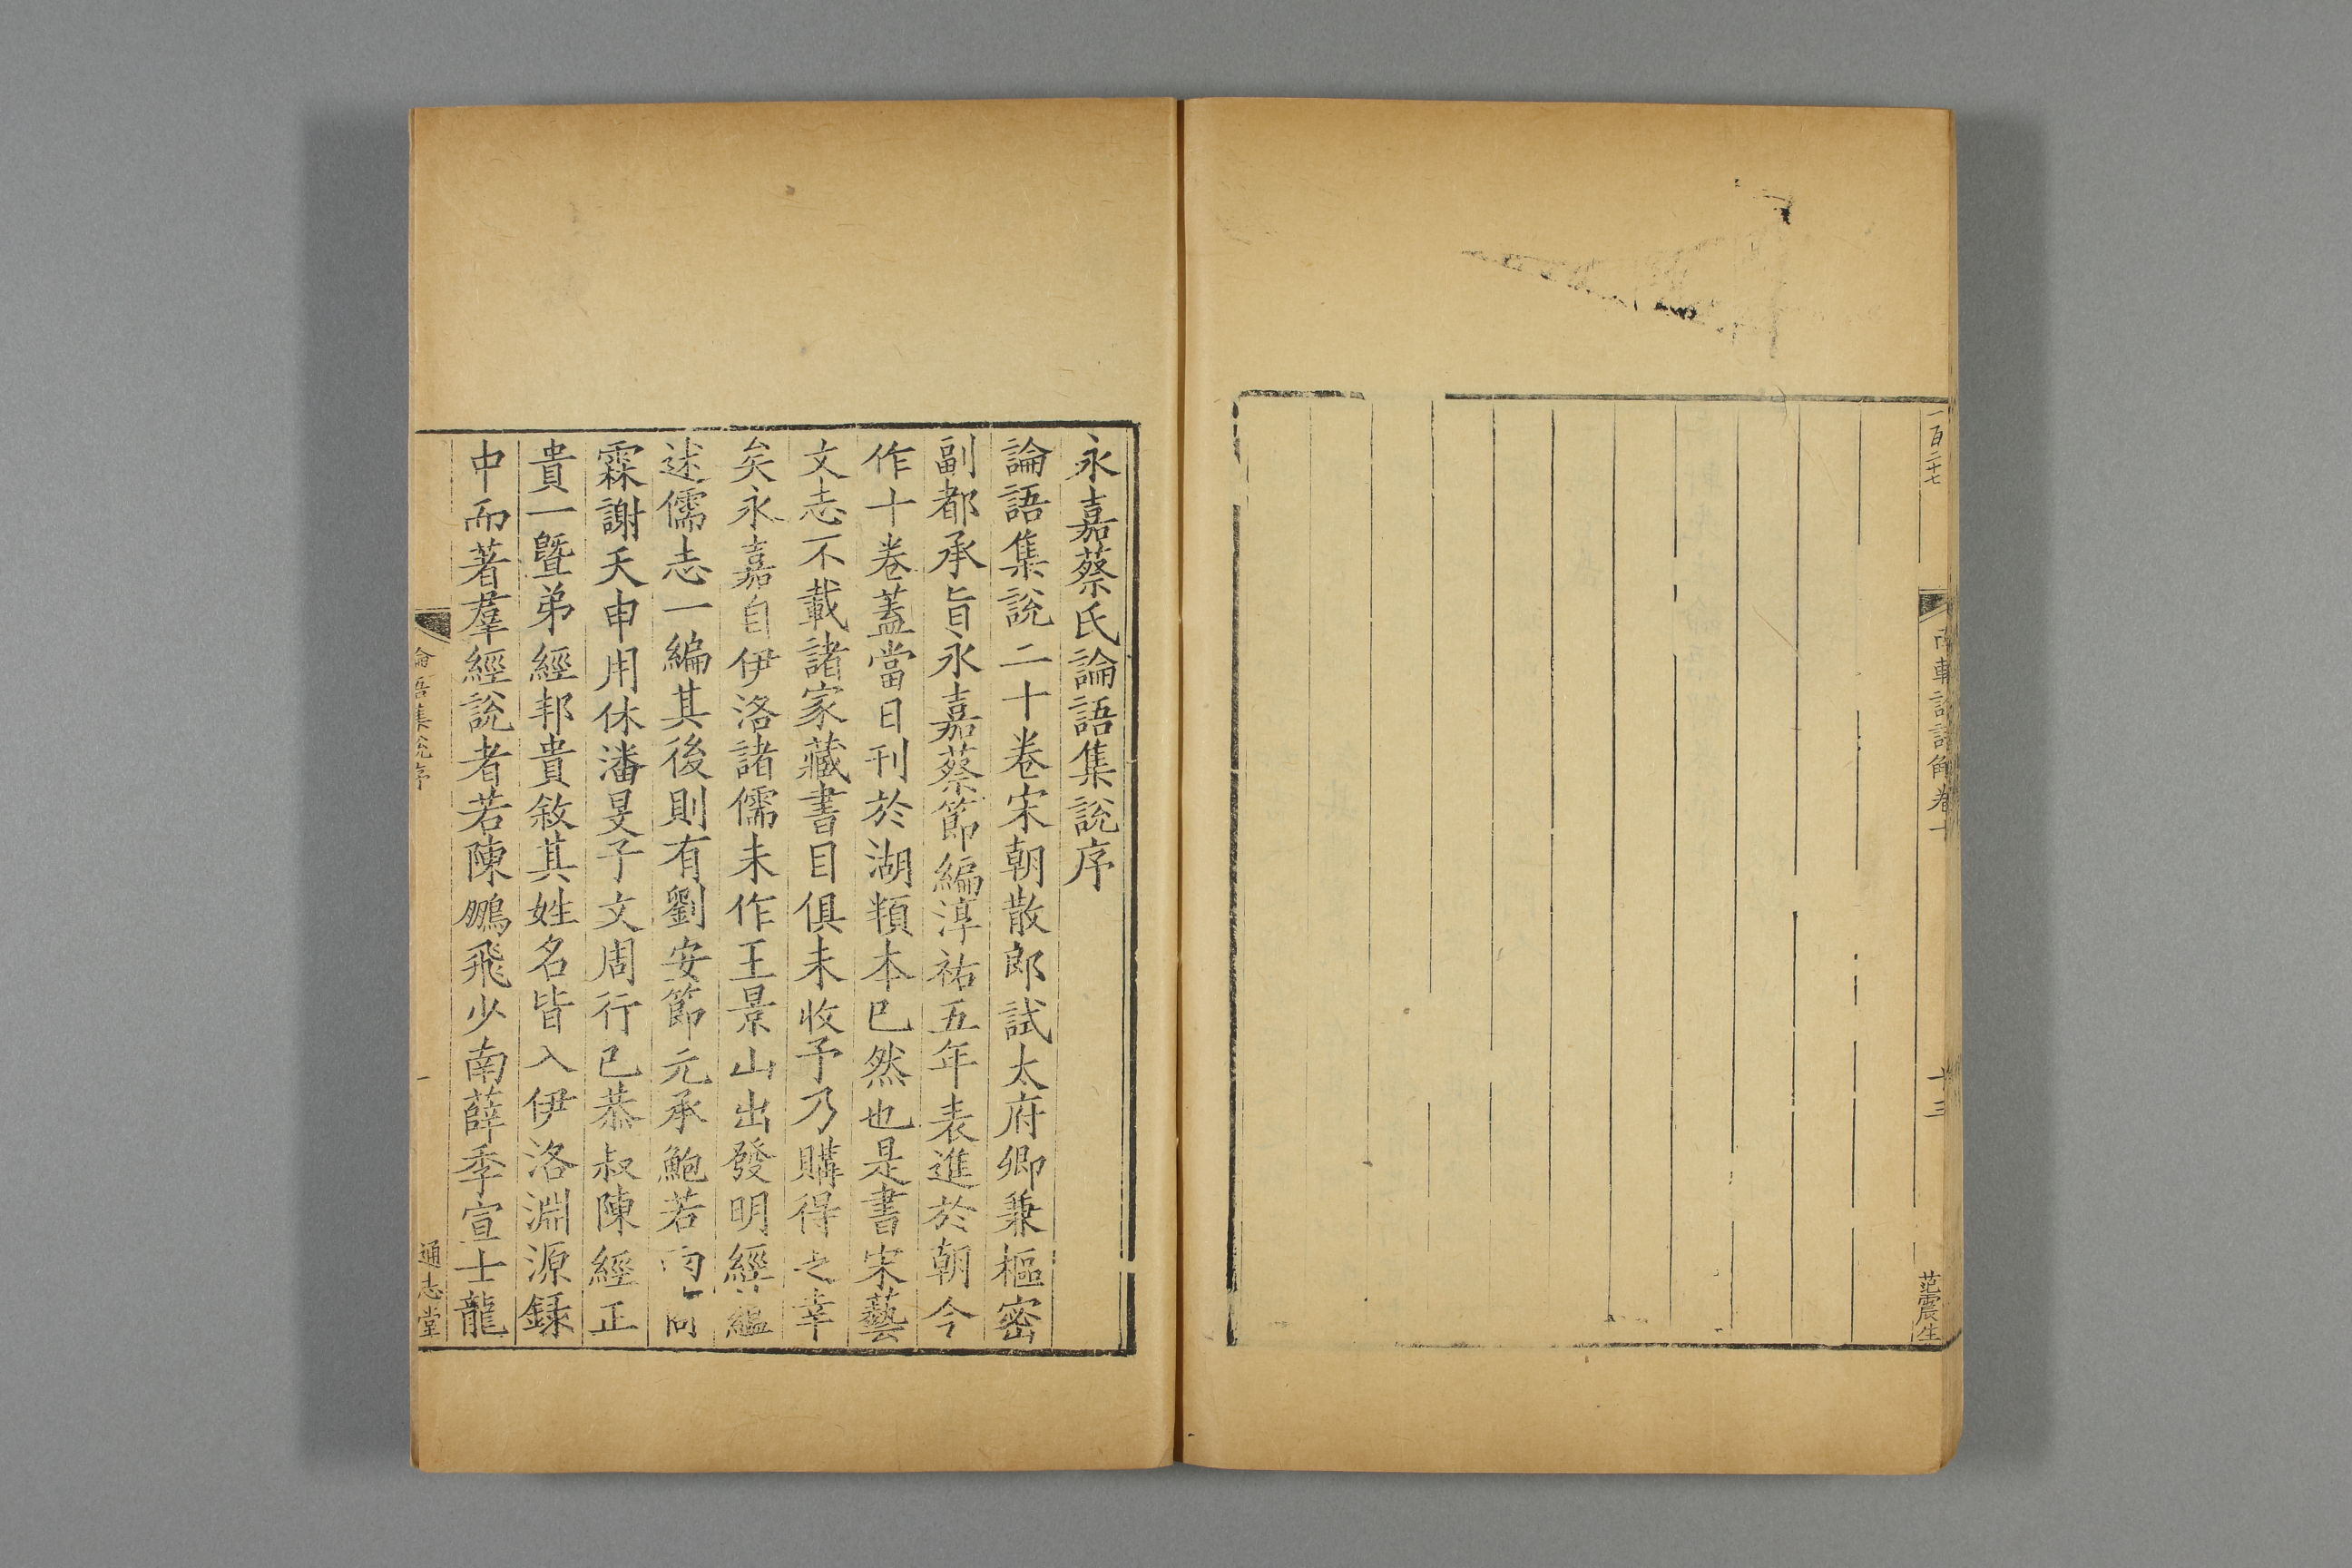 一百二十七
南軒論語解卷十
十三
范震生
永嘉蔡氏論語集說序
論語集說二十卷宋朝散郎試太府卿兼樞密
副都承旨永嘉蔡節編淳祐五年表進於朝今
作十卷蓋當日刊於湖頖本已然也是書宋藝
文志不載諸家藏書目俱未收予乃購得之幸
矣永嘉自伊洛諸儒未作王景山出發明經蘊
述儒志一編其後則有劉安節元承鮑若雨商
霖謝天申用休潘旻子文周行己恭叔陳經正
貴一曁弟經邦貴敘其姓名皆入伊洛淵源錄
中而著羣經說者若陳鵬飛少南薛季宣士龍
論語集說序
一
通志堂